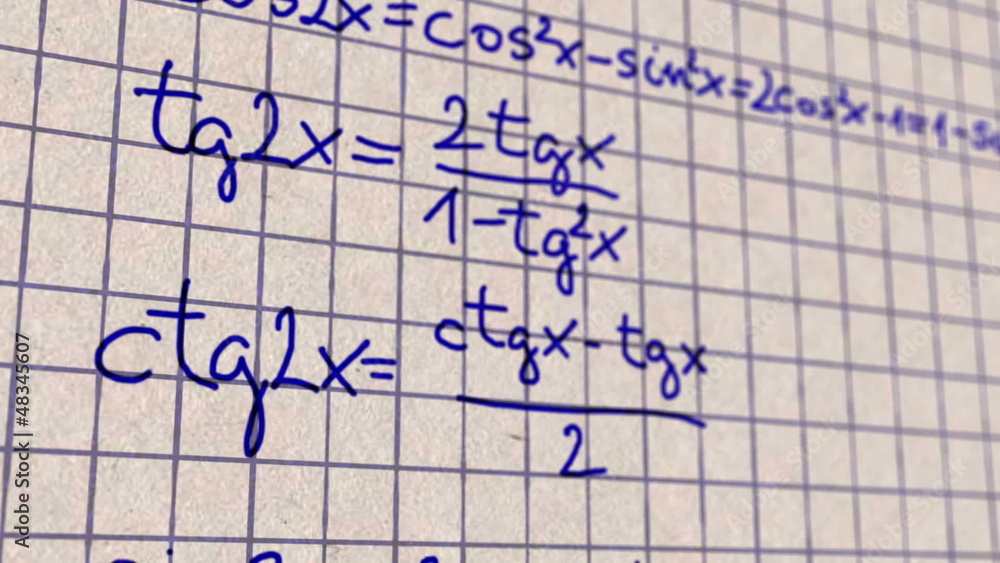 cos2x = cos²x - sin²x = 2cos²x - 1 = 1 - s
tg2x = 2tgx / 1 - tg²x
ctg2x = ctgx - tgx / 2
Adobe Stock | #48345607